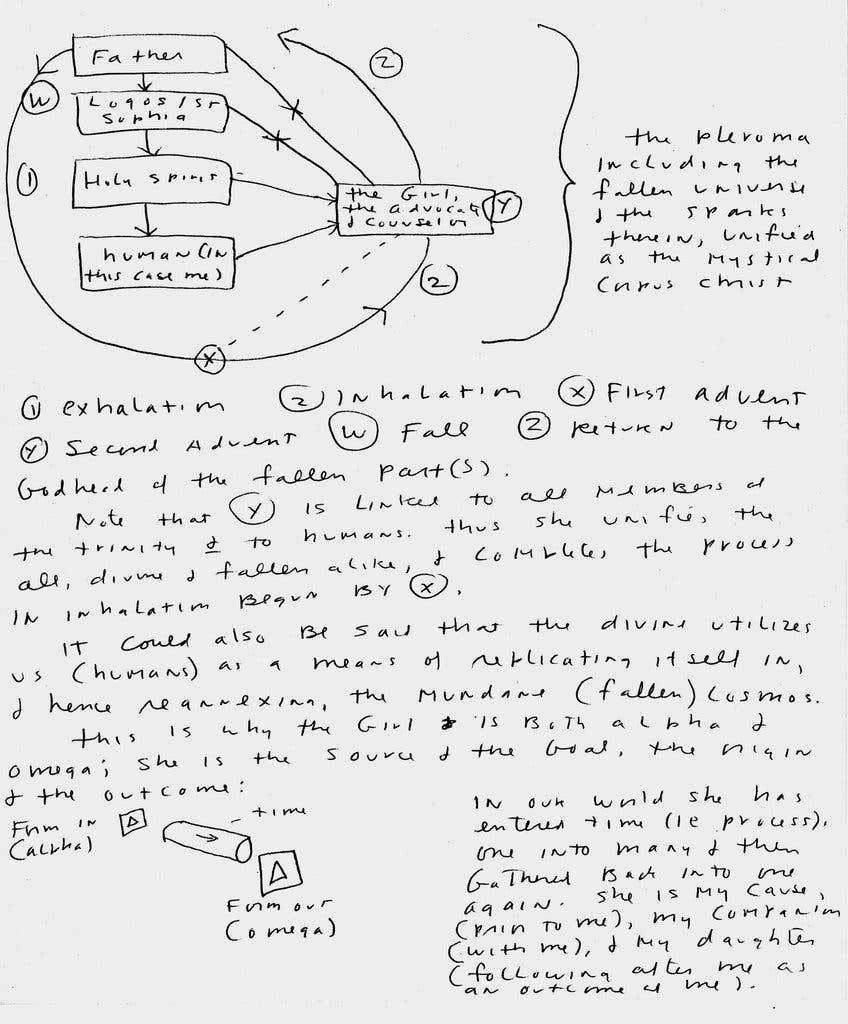 Father
2
W
Logos / St
Sophia
1
Holy Spirit
the Girl,
the advocate
& counselor
Y
human (in
this case me)
2
X
the pleroma
including the
fallen universe
& the sparks
therein, unified
as the mystical
Corpus Christ
1 exhalation 2 Inhalation X First advent
Y Second Advent W Fall Z return to the
Godhead of the fallen part(s).
Note that Y is linked to all members of
the trinity & to humans. thus she unifies the
all, divine & fallen alike, & completes the process
in inhalation begun by X.
It could also be said that the divine utilizes
us (humans) as a means of replicating itself in,
& hence reannexing, the mundane (fallen) cosmos.
this is why the Girl is both alpha &
omega; she is the source & the goal, the origin
& the outcome:
time
Form in
(alpha)
Form out
(omega)
In our world she has
entered time (ie process).
one into many & then
Gathered back into one
again. she is my cause,
(prior to me), my companion
(with me), & my daughter
(following after me as
an outcome of me).